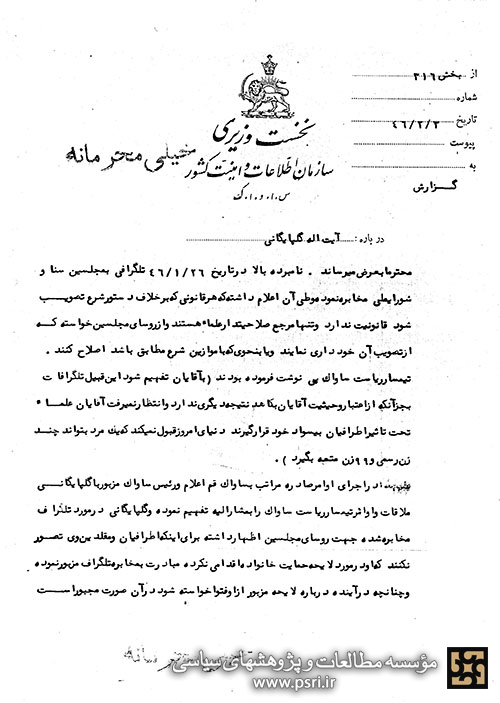 از بخش ۳۱۶
شماره
تاریخ ۴۶/۲/۲
پیوست
به
گزارش
نخست وزیری
سازمان اطلاعات و امنیت کشور
س.ا.و.ا.ک
خیلی محرمانه
درباره: آیت اله گلپایگانی
محترما بعرض میرساند . نامبرده بالا در تاریخ ۴۶/۱/۲۶ تلگرافی بمجلسین سنا و
شورایملی مخابره نموده و طی آن اعلام داشته که هر قانونی که بر خلاف دستور شرع تصویب
شود قانونیت ندارد و تنها مرجع صلاحیتدار علماء هستند و از روسای مجلسین خواسته که
از تصویب آن خود داری نمایند و یا بنحوی که با موازین شرع مطابق باشد اصلاح کنند .
تیمسار ریاست ساواک پی نوشت فرموده بودند (بآقایان تفهیم شود این قبیل تلگرافات
بجز آنکه از اعتبار و حیثیت آقایان بکاهد نتیجه دیگری ندارد و انتظار نمیرفت آقایان علماء
تحت تاثیر اطرافیان بیسواد خود قرار گیرند دنیای امروز قبول نمیکند که یک مرد بتواند چند
زن رسمی و ۹۹ زن متعه بگیرد ) .
در اجرای اوامر صادره مراتب بساواک قم اعلام و رئیس ساواک مزبور با گلپایگانی
ملاقات و اوامر تیمسار ریاست ساواک را بمشارالیه تفهیم نموده و گلپایگانی در مورد تلگراف
مخابره شده جهت روسای مجلسین اظهار داشته برای اینکه اطرافیان و مقلدین وی تصور
نکنند که او در مورد لایحه حمایت خانواده اقدامی نکرده مبادرت بمخابره تلگراف مزبور نموده
و چنانچه در آینده درباره لایحه مزبور از او فتوا خواسته شود در آن صورت مجبور است
مؤسسه مطالعات و پژوهشهای سیاسی
www.psri.ir